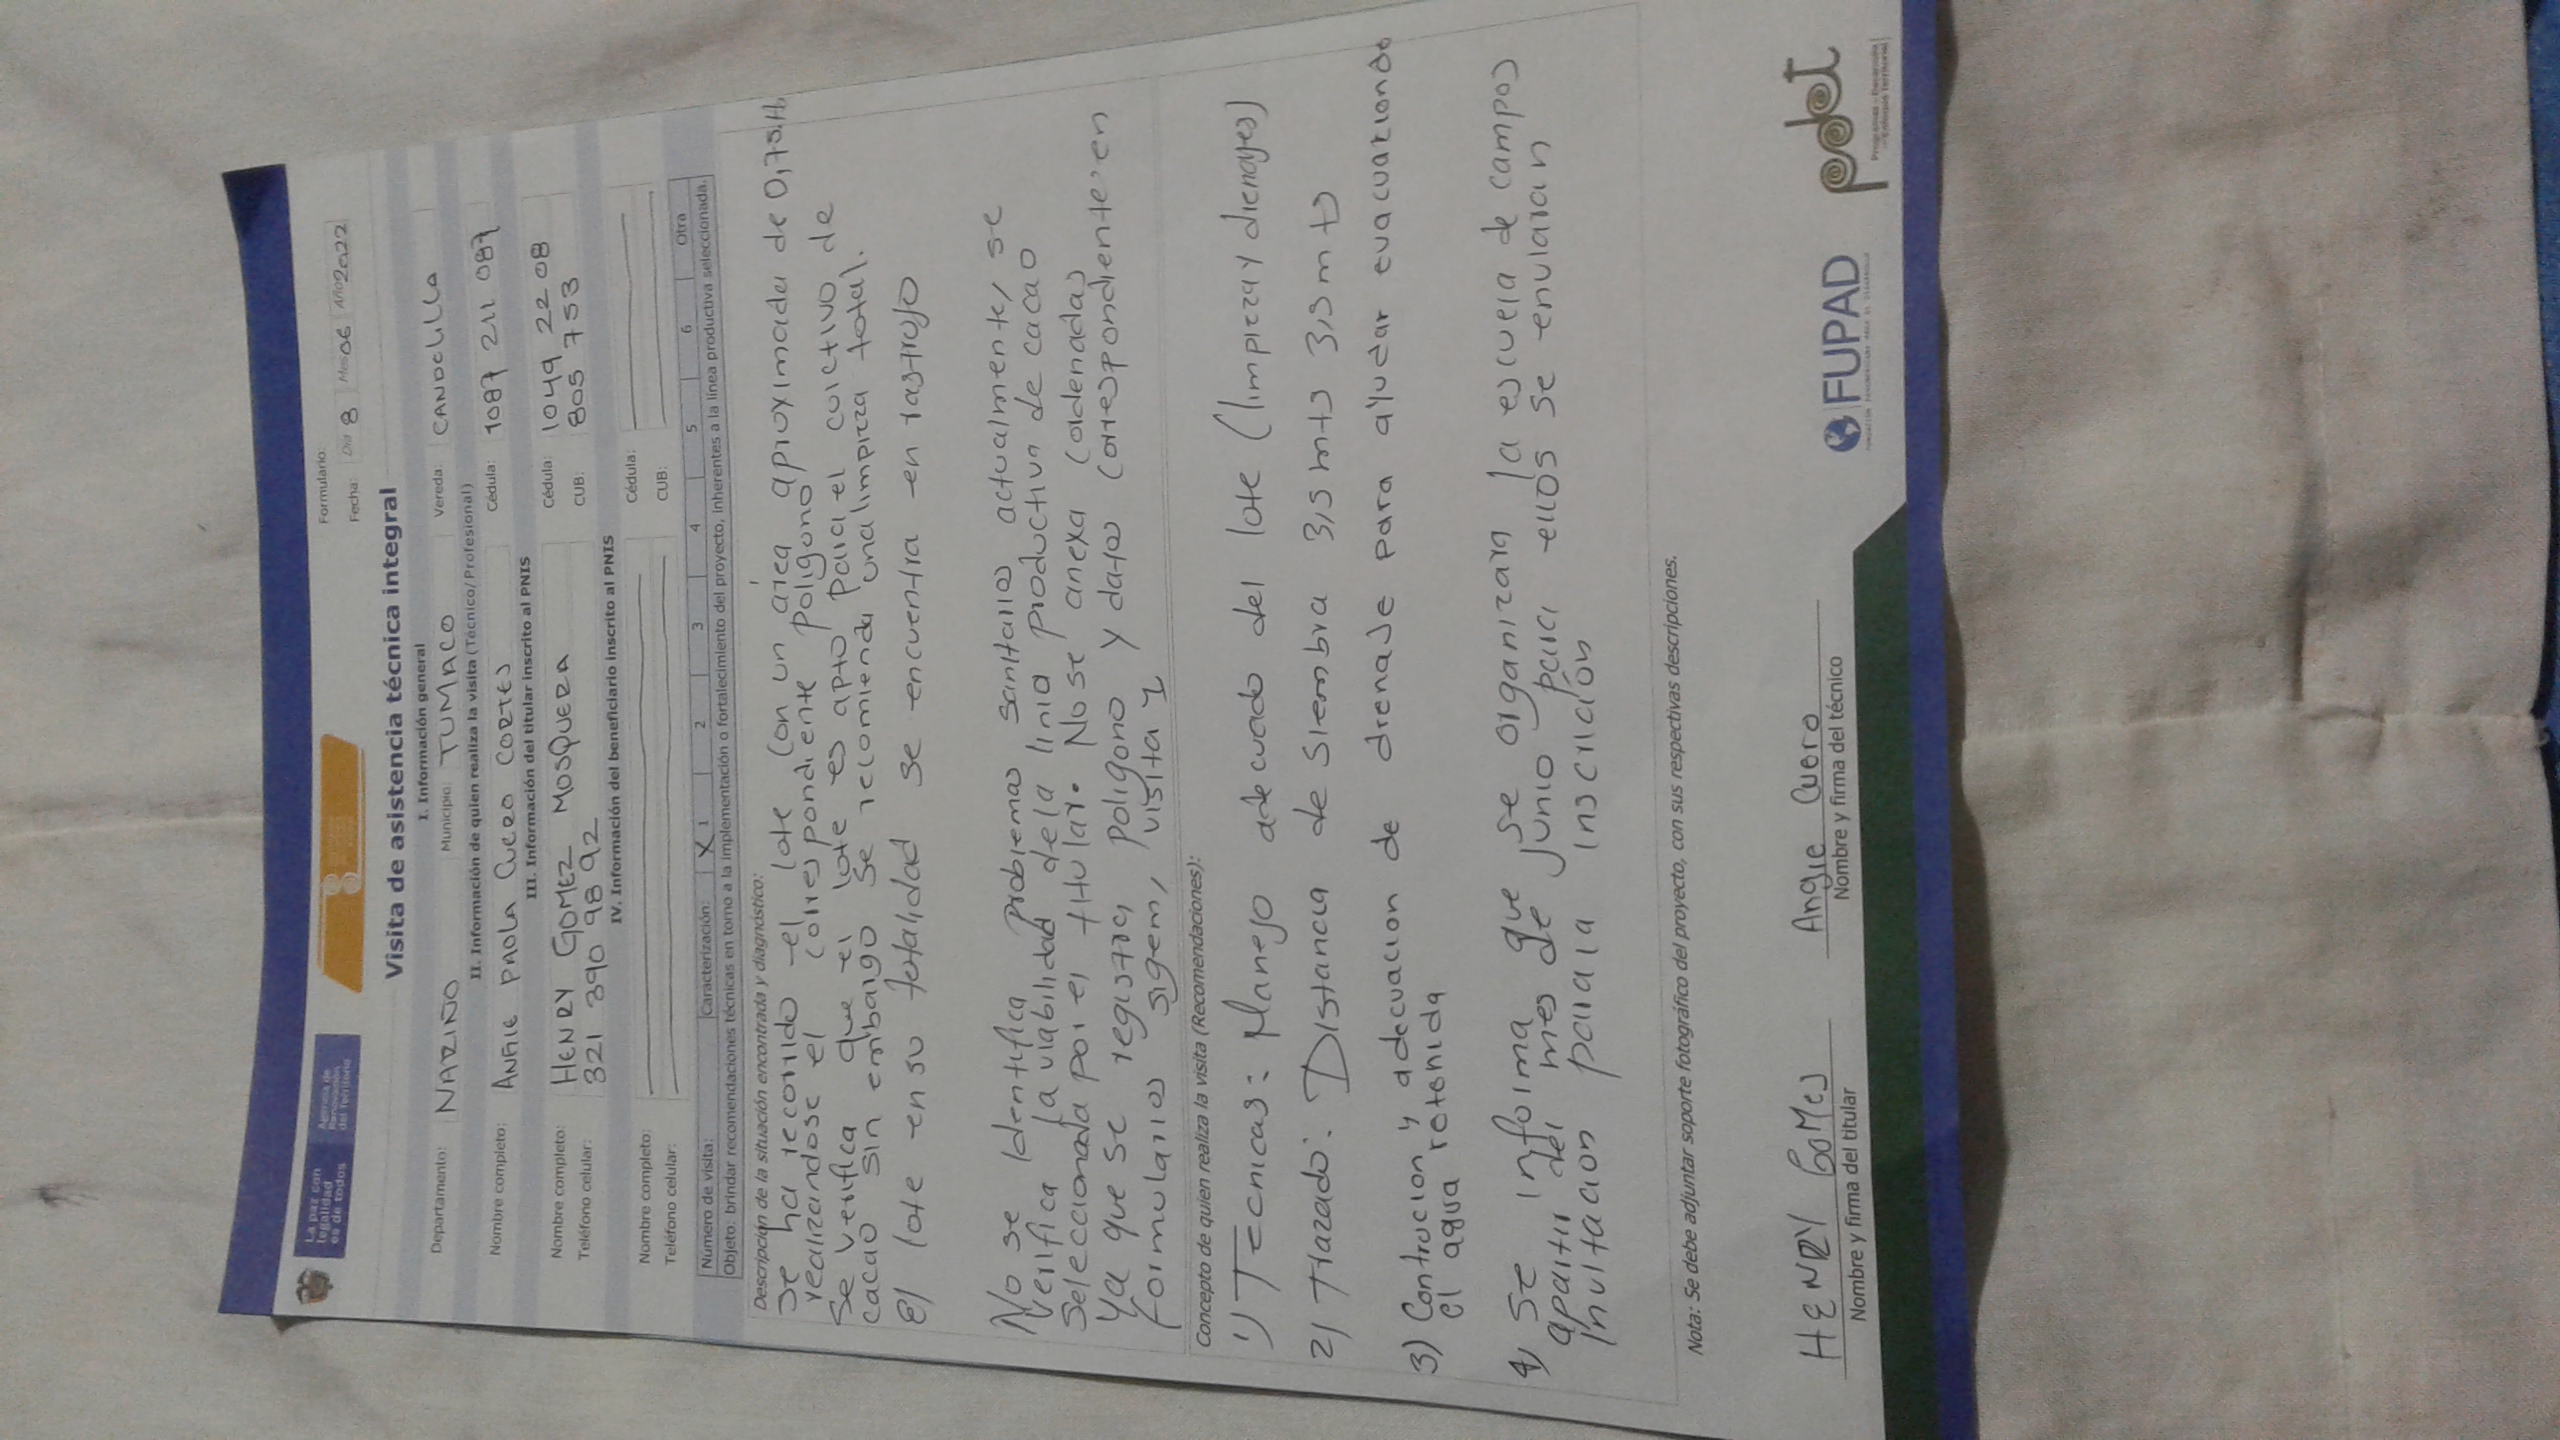 La paz con
legalidad
es de todos
Agencia de
Renovación
del Territorio
Formulario:
Fecha: Día 8 Mes 06 Año 2022
Visita de asistencia técnica integral
I. Información general
Departamento: NARIÑO Municipio: TUMACO Vereda: CANDELILLA
II. Información de quien realiza la visita (Técnico/Profesional)
Nombre completo: ANGIE PAOLA CUERO CORTES Cédula: 1087 211 087
III. Información del titular inscrito al PNIS
Nombre completo: HENRY GOMEZ MOSQUERA Cédula: 1049 22 08
Teléfono celular: 321 390 98 92 CUB: 805 753
IV. Información del beneficiario inscrito al PNIS
Nombre completo: Cédula:
Teléfono celular: CUB:
Número de visita: Caracterización: X 1 2 3 4 5 6 Otra
Objeto: brindar recomendaciones técnicas en torno a la implementación o fortalecimiento del proyecto, inherentes a la línea productiva seleccionada.
Descripción de la situación encontrada y diagnóstico:
Se ha recorrido el lote con un área aproximada de 0,75.Ha
realizandose el correspondiente poligono
Se verifica que el lote es apto para el cultivo de
cacao sin embargo se recomienda una limpieza total.
El lote en su totalidad se encuentra en rastrojo
No se identifica problemas sanitarios actualmente, se
verifica la viabilidad de la linia productiva de cacao
Seleccionada por el titular. No se anexa coordenadas
Ya que se registra poligono y datos correspondientes en
formularios sigem, visita 1
Concepto de quien realiza la visita (Recomendaciones):
1) Tecnicas: Manejo adecuado del lote (limpieza y drenajes)
2) Trazado: Distancia de siembra 3,5 mts 3,5 mts
3) Contrucion y adecuacion de drenaje para ayudar evacuaziondo
el agua retenida
4) Se informa que se organizara la escuela de campos
apartir del mes de junio para ellos se enularan
invitacion para la inscricion
Nota: Se debe adjuntar soporte fotográfico del proyecto, con sus respectivas descripciones.
HENRY GOMES
Nombre y firma del titular
Angie Cuero
Nombre y firma del técnico
FUPAD
pdet